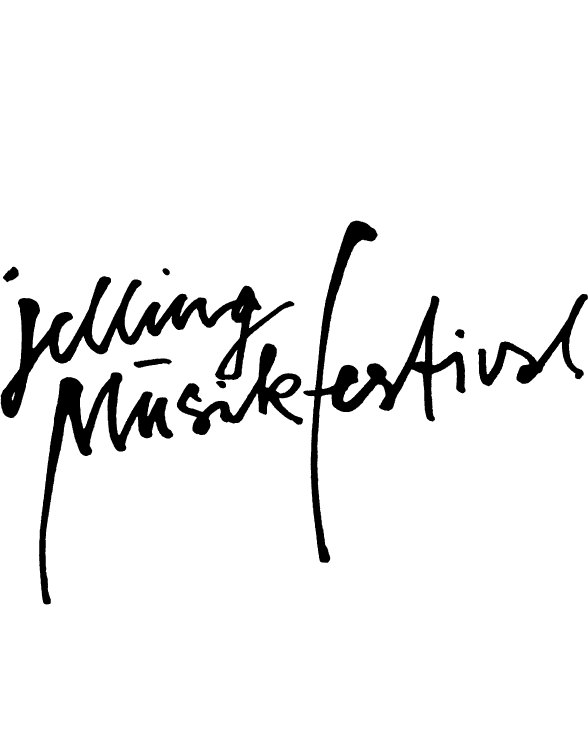 jelling
Musikfestival